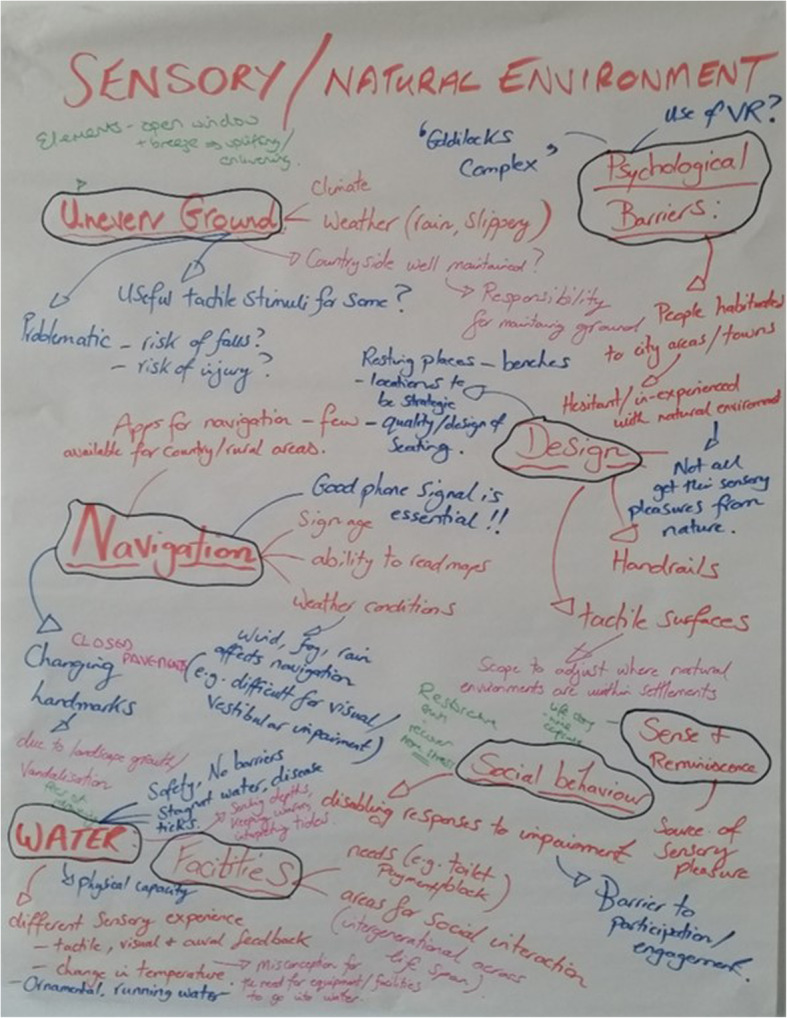 SENSORY / NATURAL ENVIRONMENT
Elements - open window
+ breeze => uplifting/
enlivening.
"Goldilocks
Complex"
Use of VR?
Psychological
Barriers:
Uneven Ground
Climate
Weather (rain, slippery)
Countryside well maintained?
Responsibility
for maintaing ground
Useful tactile stimuli for some?
Problematic - risk of falls?
- risk of injury?
People habituated
to city areas/towns
Hesitant/in-experienced
with natural environment
Not all
get their sensory
pleasures from
nature.
Resting places - benches
- locations to
be strategic
- quality/design of
seating.
Design
Handrails
tactile surfaces
Scope to adjust where natural
environments are within settlements
Apps for navigation - few
available for country/rural areas.
Navigation
Good phone signal is
essential!!
Signage
ability to read maps
Weather conditions
Wind, fog, rain
affects navigation
(e.g. difficult for visual/
vestibular impairment)
CLOSED
PAVEMENTS
Changing
landmarks
due to landscape growth/
Vandalisation
Restorative
own
recover
from stress
Sense +
Reminiscence
Source of
Sensory
pleasure
Social behaviour
disabling responses to impairment
Barrier to
participation/
engagement.
Safety, No barriers
Stagnant water, disease
ticks.
WATER
physical capacity
different sensory experience
- tactile, visual + aural feedback
- change in temperature
- Ornamental, running water
Misconception for
the need for equipment/facilities
to go into water.
Facilities
needs (e.g. toilet
Payment/block)
areas for social interaction
(intergenerational across
life span)